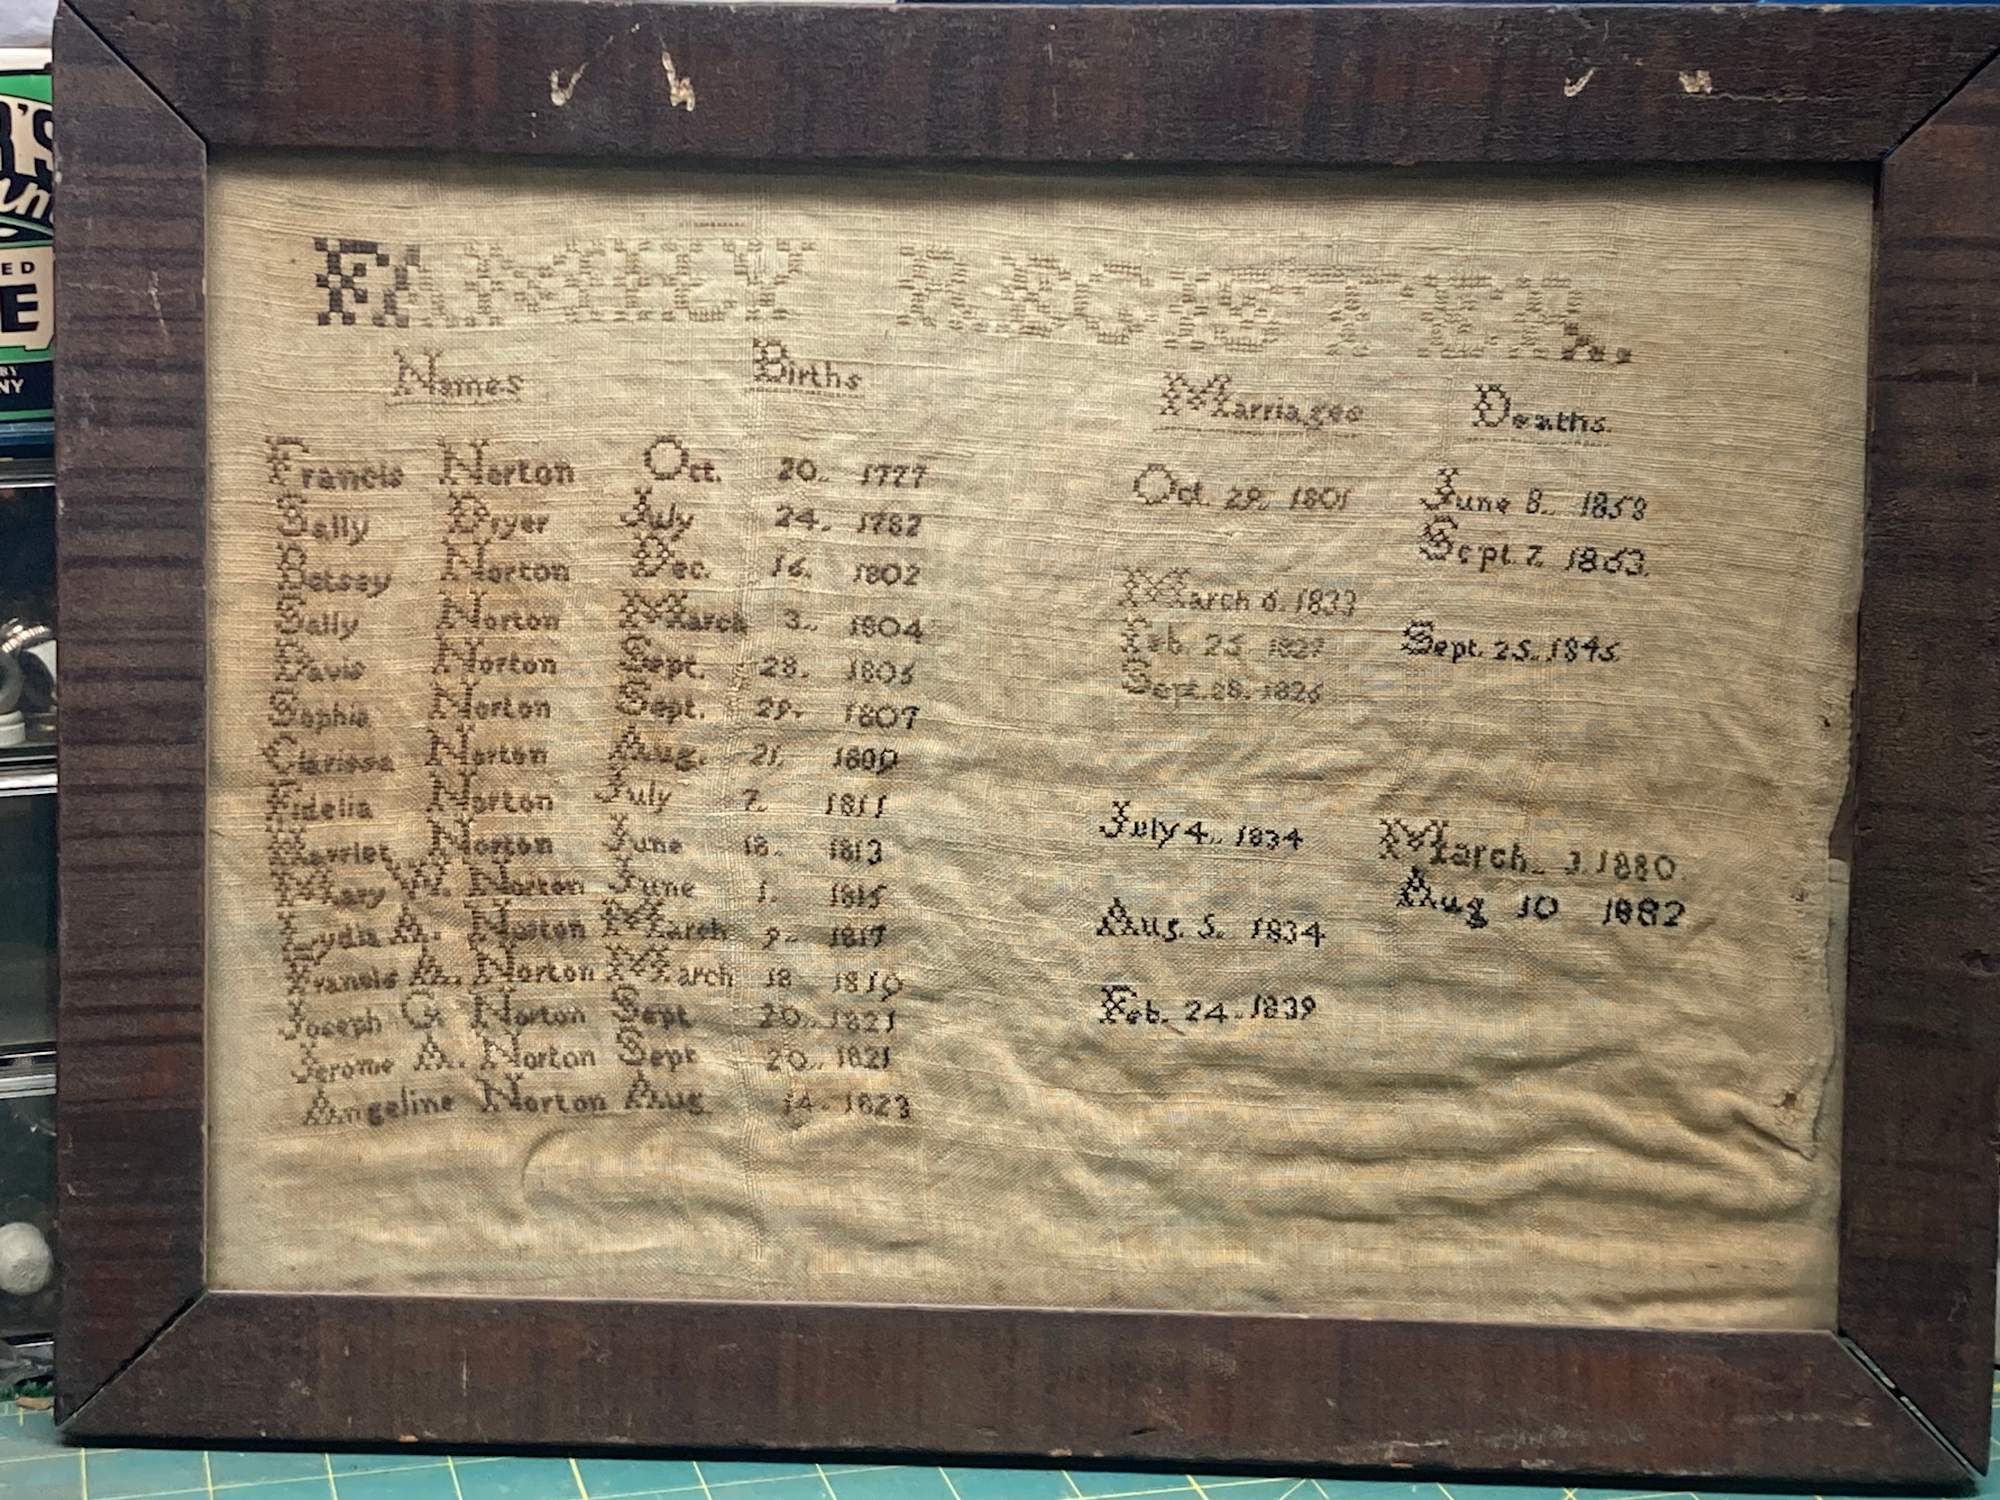 FAMILY REGISTER.
Names Births Marriages Deaths.
Francis Norton Oct. 20.. 1777 Oct. 29.. 1801 June 8.. 1858
Sally Dryer July 24.. 1782 Sept. 7. 1863.
Betsey Norton Dec. 16. 1802 March 6. 1833
Sally Norton March 3.. 1804 Feb. 25. 1827 Sept. 25.. 1845.
Davis Norton Sept. 28. 1805 Sept. 28. 1826
Sophia Norton Sept. 29. 1807
Clarissa Norton Aug. 21. 1809
Fidelia Norton July 7.. 1811 July 4.. 1834 March.. 3. 1880.
Harriet Norton June 18.. 1813 Aug 10 1882
Mary W. Norton June 1. 1815 Aug. 5.. 1834
Lydia A. Norton March 9.. 1817
Francis A. Norton March 18 1819 Feb. 24.. 1839
Joseph G. Norton Sept 20.. 1821
Jerome A. Norton Sept 20.. 1821
Angeline Norton Aug 14. 1823
ED
E
BY
NY